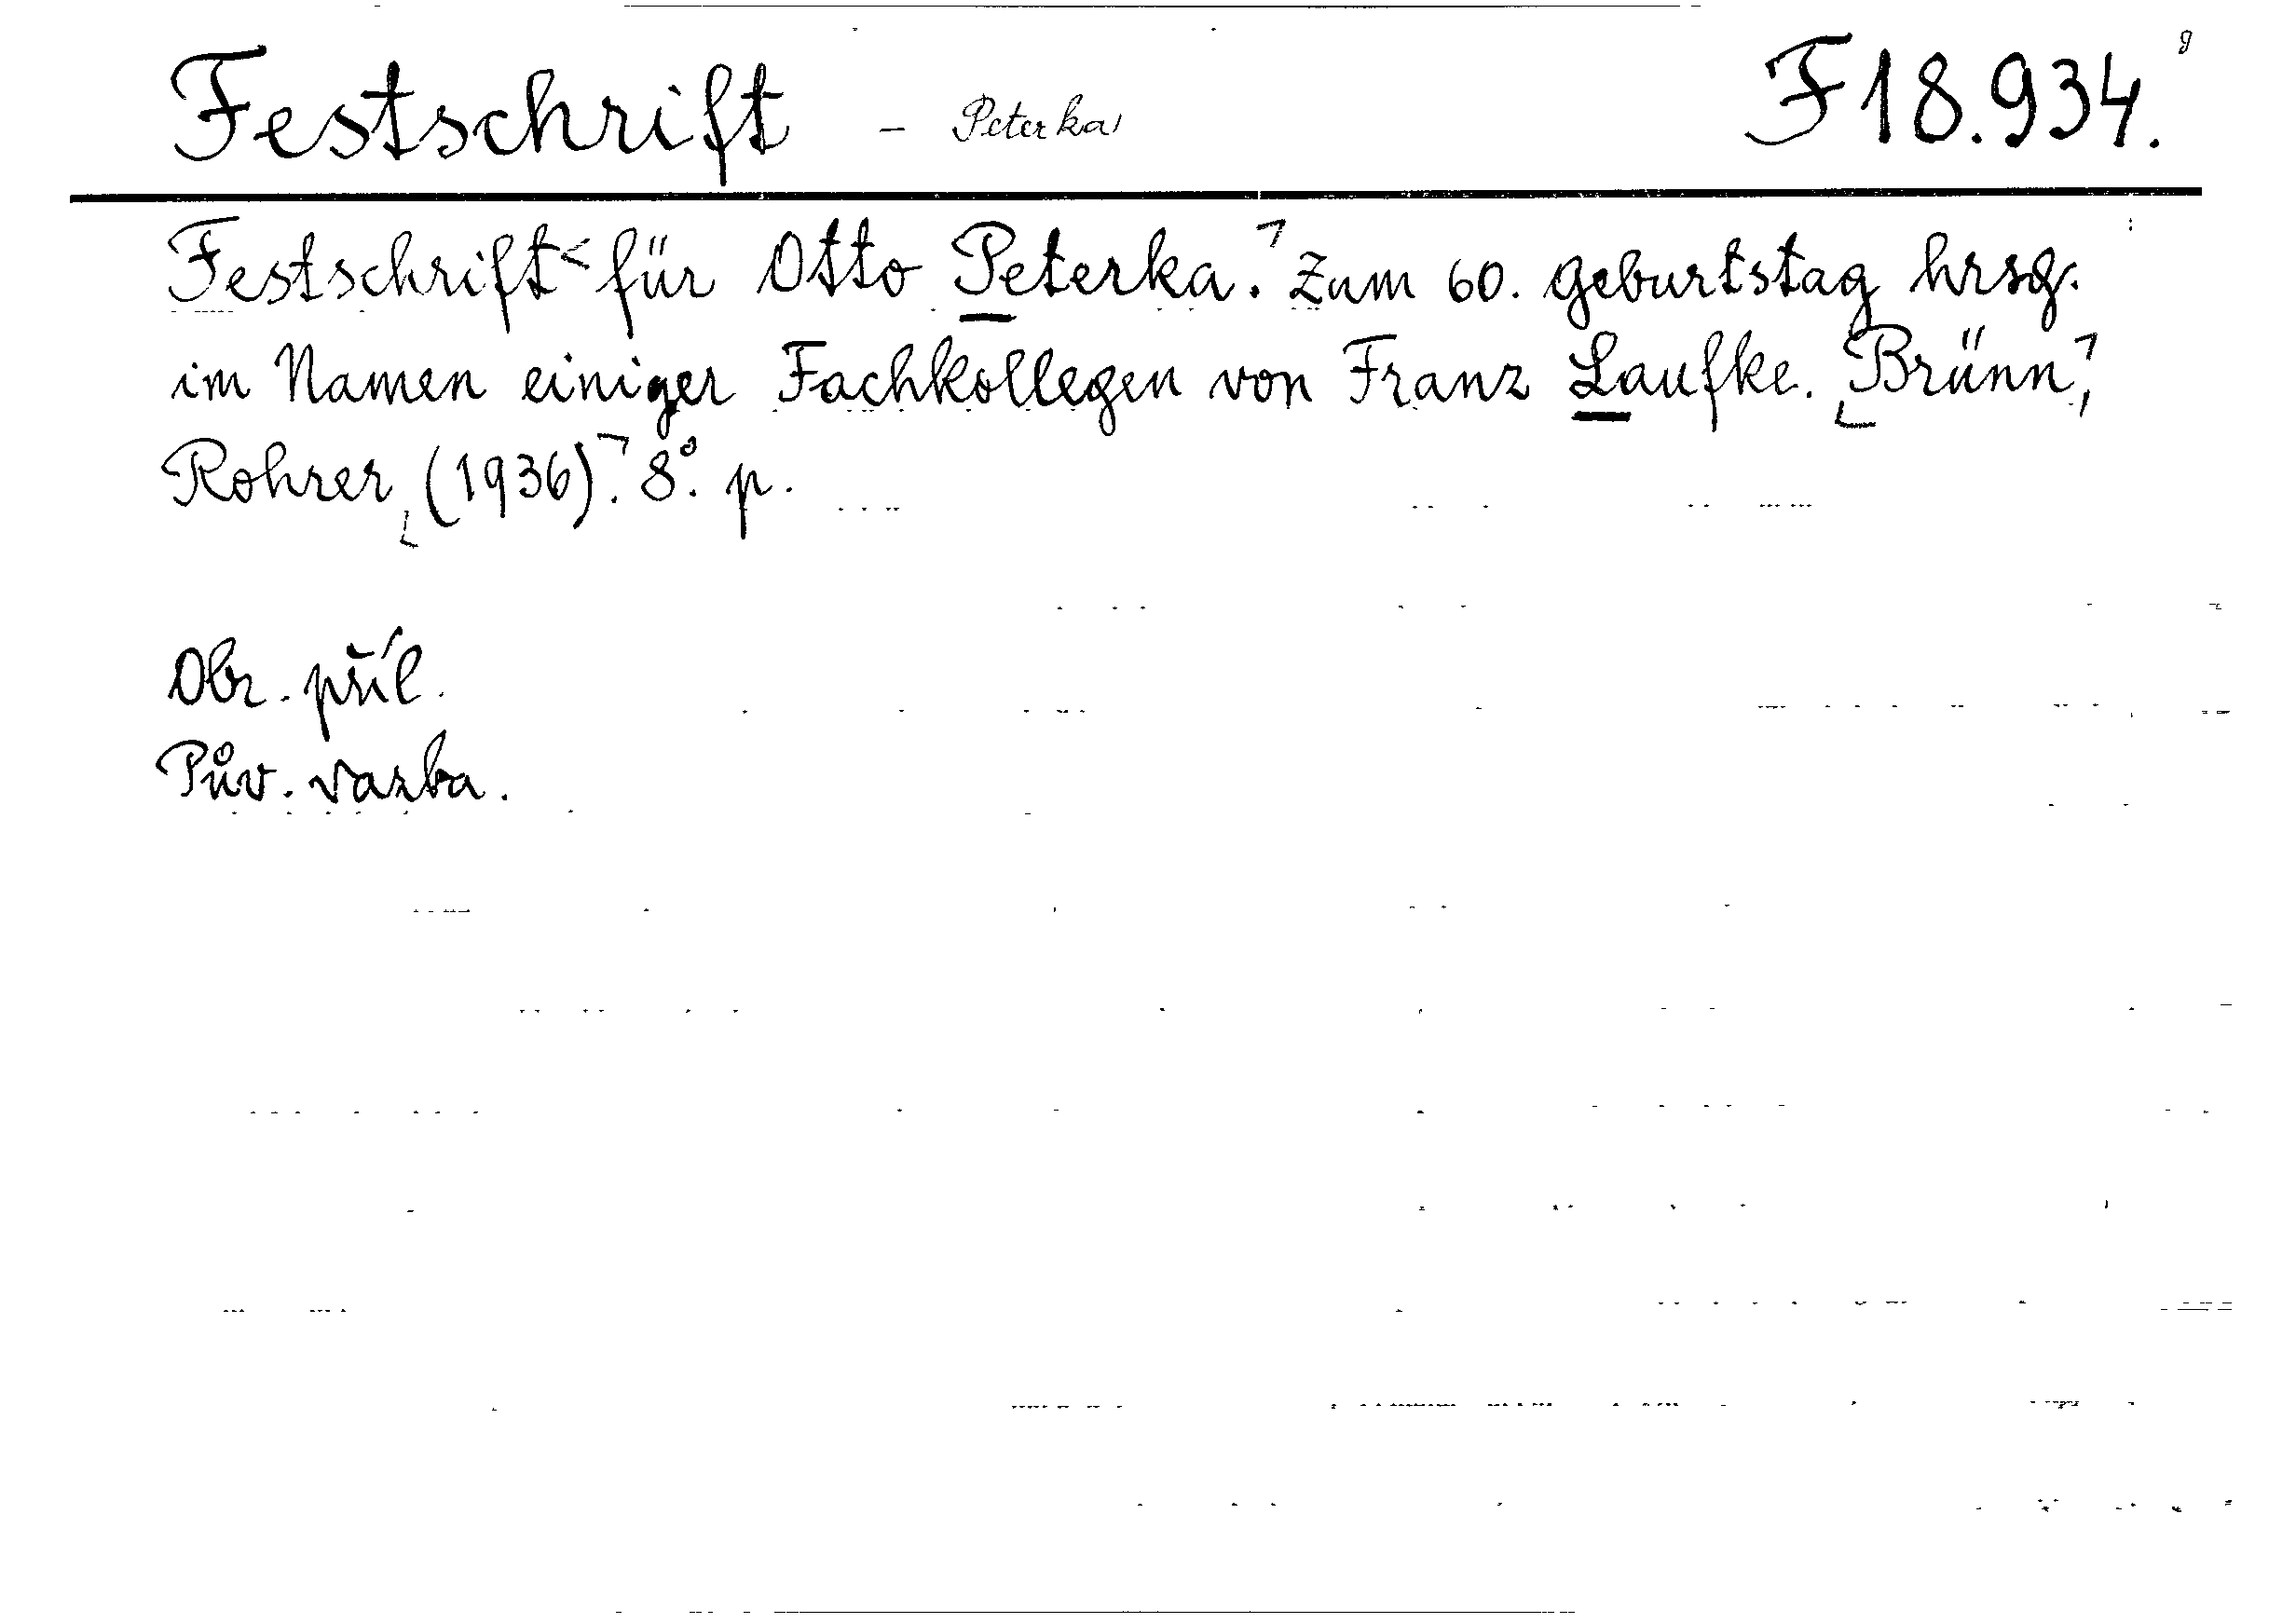 Festschrift - Peterka F 18.934. g
Festschrift < für Otto Peterka.⌝ Zum 60. Geburtstag hrsg.
im Namen einiger Fachkollegen von Franz Laufke. ⌞Brünn,⌝
Rohrer ⌞(1936).⌝ 8°. p.
Obr. příl.
Pův. vazba.